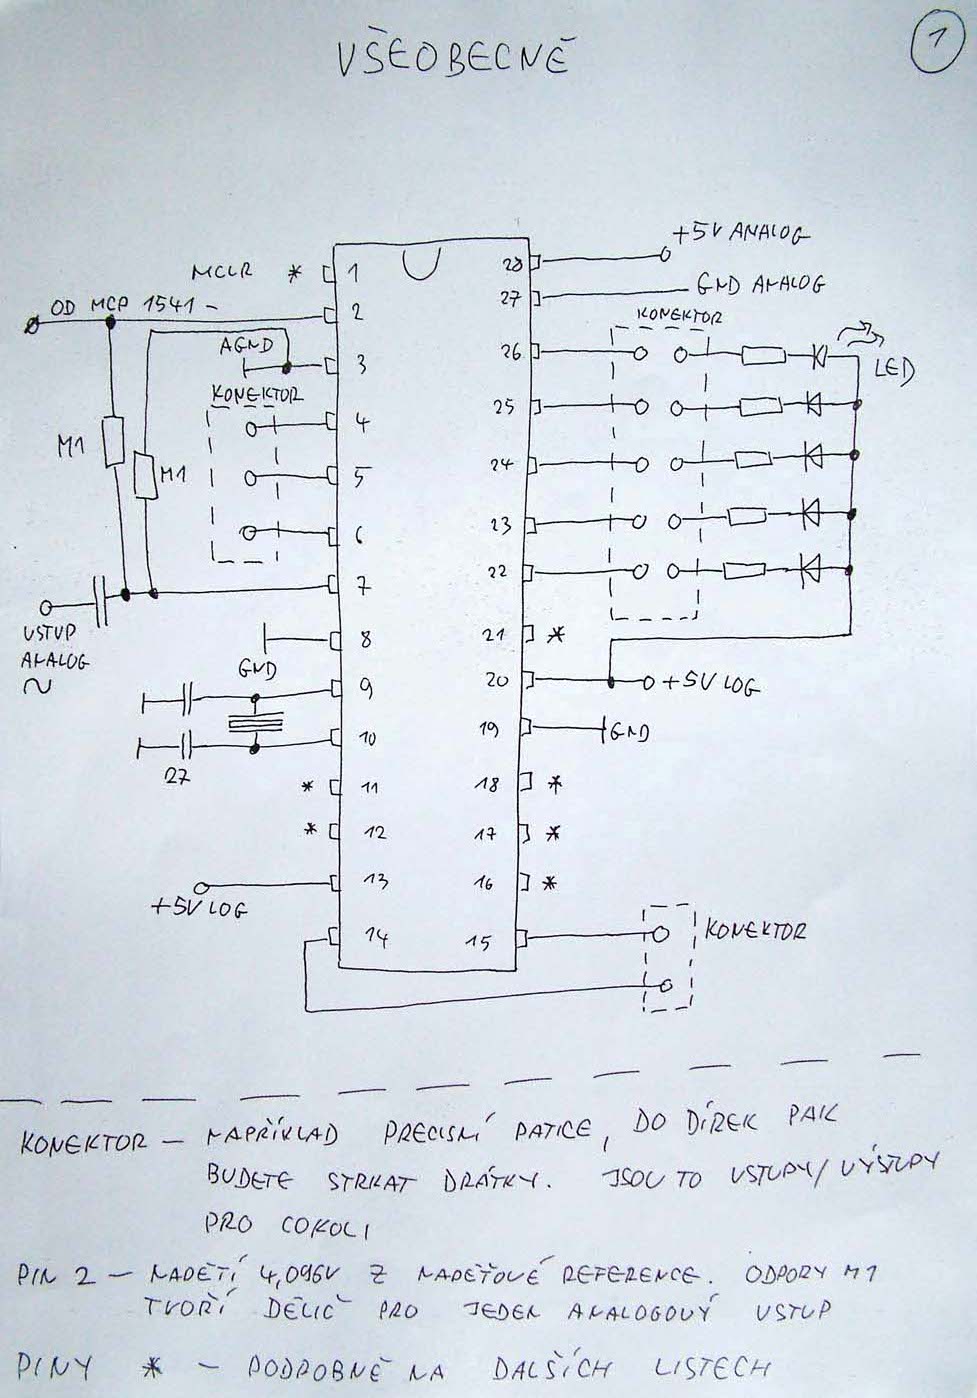 VŠEOBECNĚ
1
MCLR * 1
OD MCP 1541 - 2
AGND 3
KONEKTOR
4
M1
M1
5
6
7
VSTUP
ANALOG
~
8
GND
9
10
27
* 11
* 12
13
+5V LOG
14
28 +5V ANALOG
27 GND ANALOG
KONEKTOR
26
LED
25
24
23
22
21 *
20 +5V LOG
19 GND
18 *
17 *
16 *
15 KONEKTOR
KONEKTOR – NAPŘÍKLAD PRECISNÍ PATICE, DO DÍREK PAK
BUDETE STRKAT DRÁTKY. JSOU TO VSTUPY/VÝSTUPY
PRO COKOLI
PIN 2 – NAPĚTÍ 4,096V Z NAPĚŤOVÉ REFERENCE. ODPORY M1
TVOŘÍ DĚLIČ PRO JEDEN ANALOGOVÝ VSTUP
PINY * – PODROBNĚ NA DALŠÍCH LISTECH